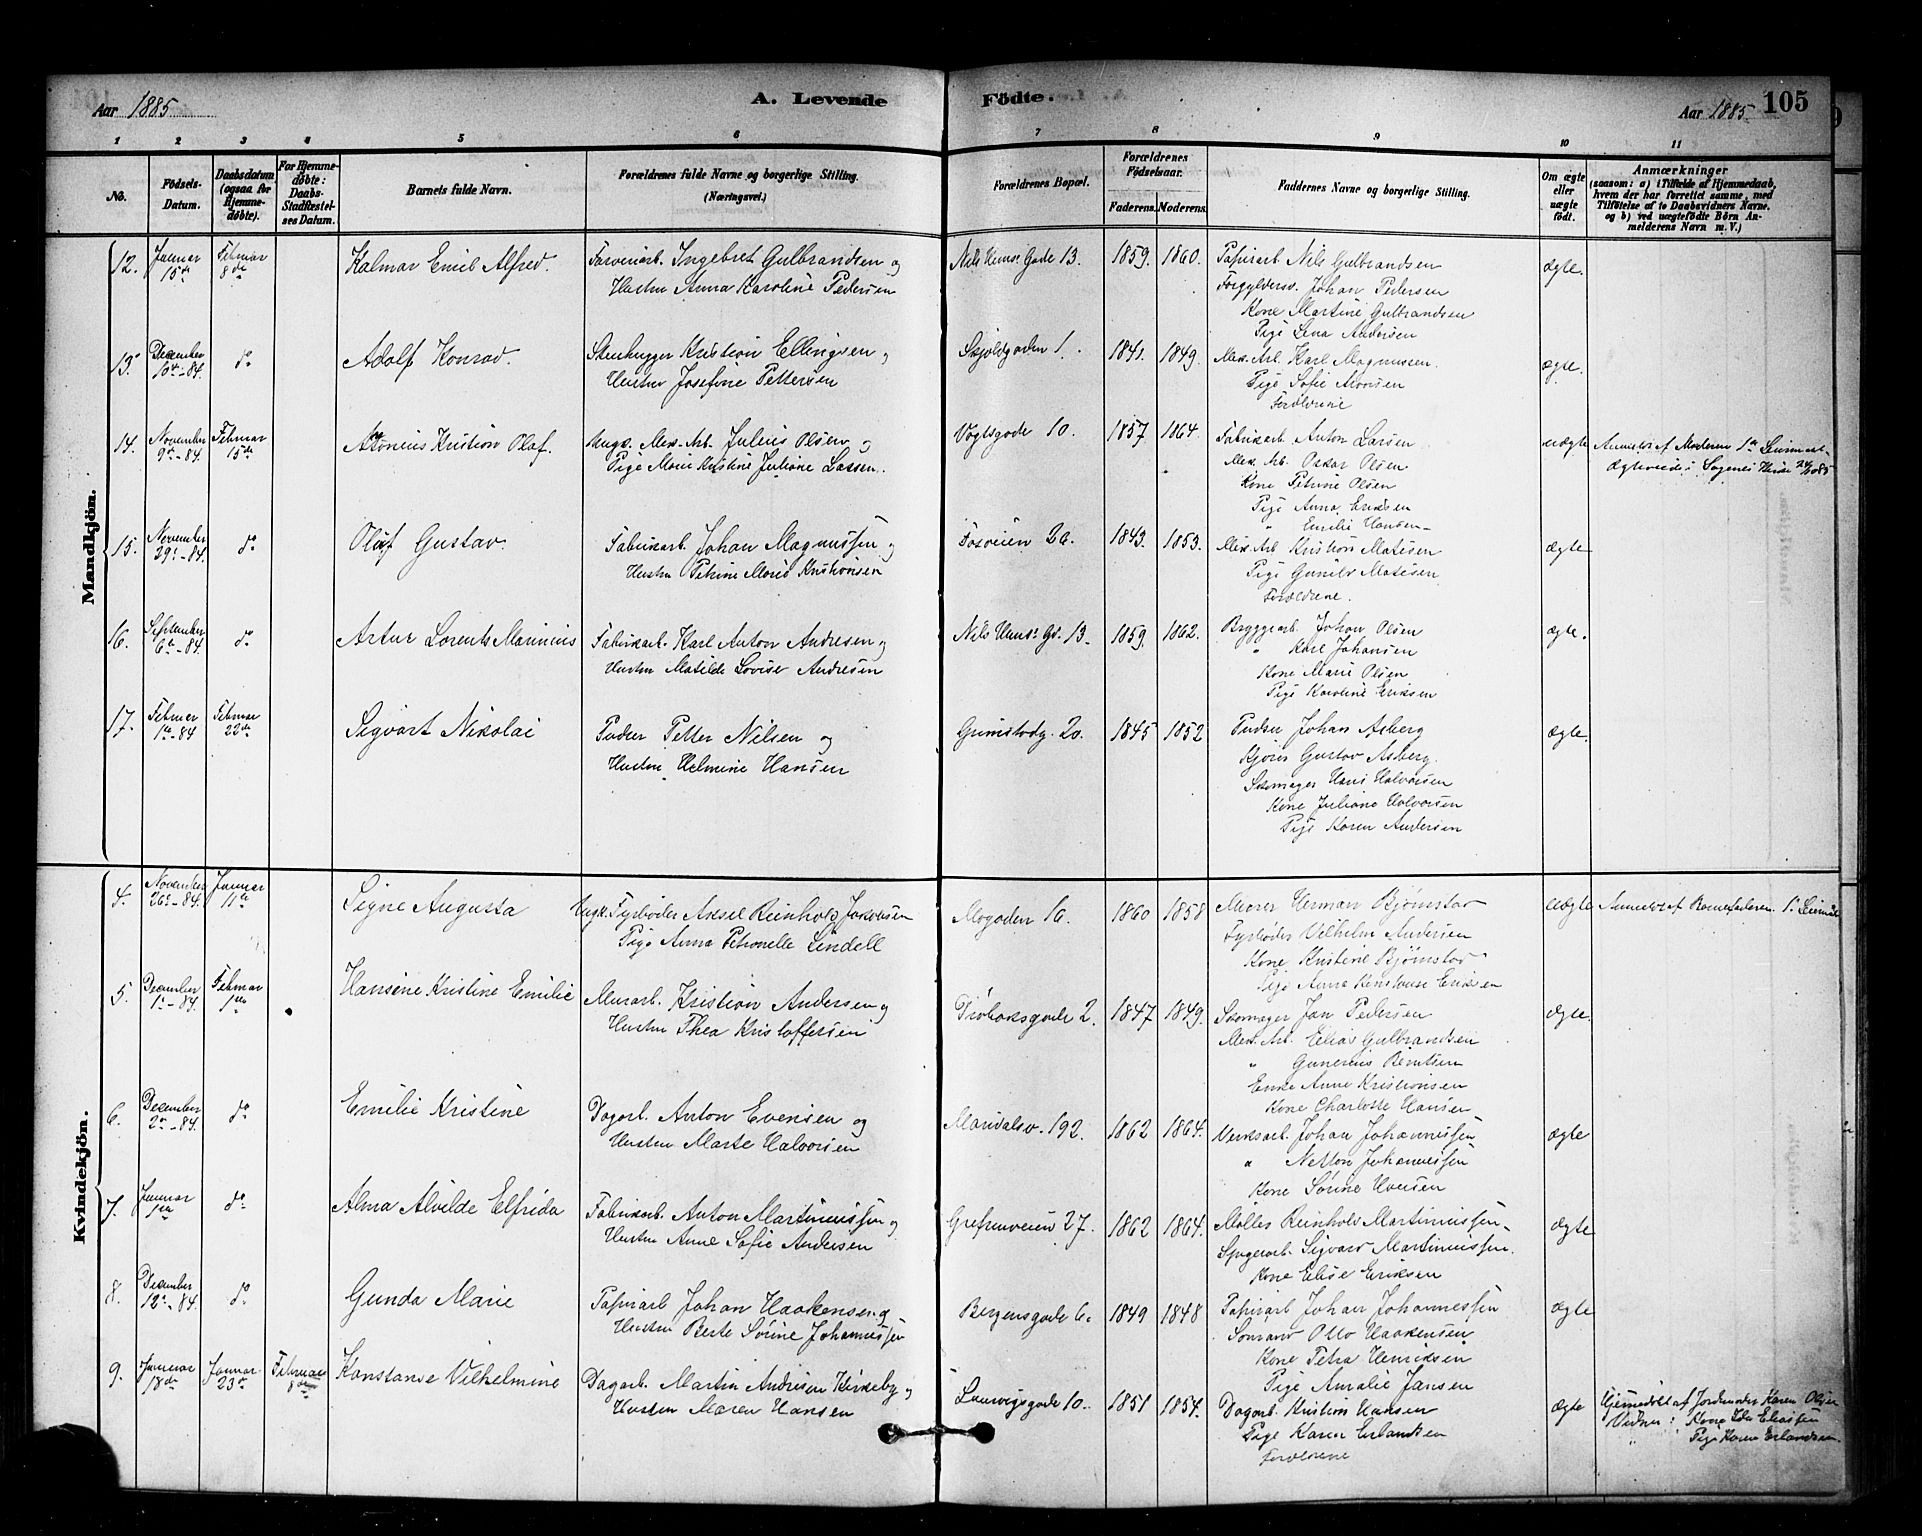 Aar 1885
A. Levende Födte.
Aar 1885. 105
1 2 3 4 5 6 7 8 9 10 11
No.
Födsels-
Datum.
Daabsdatum
(ogsaa for
Hjemme-
döbte).
For Hjemme-
döbte:
Daabs-
Stadfæstel-
ses Datum.
Barnets fulde Navn.
Forældrenes fulde Navne og borgerlige Stilling.
(Næringsvei.)
Forældrenes Bopæl.
Forældrenes
Födselsaar.
Faderens. Moderens.
Faddernes Navne og borgerlige Stilling.
Om ægte
eller
uægte
født.
Anmærkninger
(saasom: a) i Tilfælde af Hjemmedaab,
hvem der har forrettet samme, med
Tilföielse af to Daabsvidners Navne.
og b) ved uægtefödte Börn An-
melderens Navn m. V.)
Mandkjön.
12. Januar 15de Februar 8de
Halmar Emil Alfred.
Farveriarb. Ingebret Gulbrandsen og
Hustru Anna Karoline Pedersen
Nils Huus' Gade 13. 1859. 1860.
Papirarb Nils Gulbrandsen
Forgyldersv. Johan Pedersen
Kone Martine Gulbrandsen
Pige Lena Andersen
ægte.
13. December 10de-84. do
Adolf Konrad.
Stenhugger Kristian Ellingsen og
Hustru Josefine Pettersen
Skjoldgaden 1. 1841. 1849.
Mek. Arb. Karl Magnussen.
Pige Sofie Monsen
Forældrene
ægte.
14. November 9de-84. Februar 15de
Antonius Kristian Olaf.
Ungk. Mek. Arb. Julius Olsen og
Pige Marie Kristine Juliane Larsen.
Vogtsgade 10. 1857 1864.
Fabrikarb Anton Larsen
Mek. Arb. Oskar Olsen
Kone Petrine Olsen
Pige Anna Eriksen
" Emilie Hansen
uægte
Anmeldt af Moderen 1ste Leiermaal
Ægteviede i Sagenes Kirke
15. November 29de-84. do
Olaf Gustav.
Fabrikarb. Johan Magnussen og
Hustru Petrine Marie Kristiansen
Fosveien 26. 1843. 1853.
Mek. Arb Kristian Matisen
Pige Gunild Matisen
Forældrene.
ægte
16. September 6te-84. do
Artur Lorents Marinius
Fabrikarb. Karl Anton Andresen og
Hustru Matilde Lovise Andresen
Nils Huus' Gd. 13. 1859. 1862.
Bryggearb. Johan Olsen
" Karl Johansen
Kone Marie Olsen
Pige Karoline Eriksen
ægte.
17. Februar 1ste-84 Februar 22de
Sigvart Nikolai
Pudser Petter Nilsen og
Hustru Helmine Hansen
Grimstadg. 20. 1845 1852
Pudser Johan Asberg
Kjøres Gustav Asberg.
Skomager Hans Halvorsen
Kone Juliane Halvorsen
Pige Karen Andersen
ægte.
Kvindekjön.
4. November 26de-84. Januar 11te
Signe Augusta
Ungk. Fyrbøder Aksel Reinhold Jakobsen
Pige Anna Petronelle Lindell
Mogaden 16. 1860 1858
Murer Herman Bjørnstad
Fyrbøder Vilhelm Andersen
Kone Kristine Bjørnstad
Pige Anna Konstanse Eriksen
uægte
Anmeldt af Barnefaderen. 1ste Leiermaal
5. December 1ste-84. Februar 1ste
Hansine Kristine Emilie
Murarb. Kristian Andersen og
Hustru Thea Kristoffersen
Drøbaksgade 2. 1847 1849.
Skomager Jan Pedersen
Mek. Arb. Elias Gulbrandsen
" Gunerius Berntsen
Enke Anne Kristiansen
Kone Charlotte Hansen
ægte.
6. December 2den-84. do
Emilie Kristine
Dagarb. Anton Evensen og
Hustru Marte Halvorsen
Maridalsv. 192. 1862 1864.
Verksarb. Johan Johannessen
" Netton Johannessen
Kone Sørine Hansen
ægte
7. Januar 1ste do
Alma Alvilde Elfrida
Fabrikarb. Anton Martiniussen og
Hustru Anne Sofie Andersen
Grefsenveien 27. 1862 1864.
Møller Reinhold Martiniussen.
Spigerarb. Sigvard Martiniussen.
Kone Elise Eriksen
ægte
8. December 12te-84. do
Gunda Marie
Papirarb Johan Haakensen og
Hustru Berte Sørine Johannessen
Bergensgade 6. 1849 1848
Papirarb Johan Johannessen
Otto Haakensen
Kone Petra Henriksen
Pige Amalie Jansen
ægte
9. Januar 18de Januar 23de Februar 8de
Konstanse Vilhelmine
Dagarb. Martin Andresen Kirkeby og
Hustru Maren Hansen
Laurvigsgade 10. 1851 1854.
Dagarb. Kristian Hansen
Pige Karen Erlandsen
Forældrene
ægte
Hjemmedøbt af Jordmoder Karen Olsen
Vidner: Kone Ida Eliassen
" Pige Karen Erlandsen.